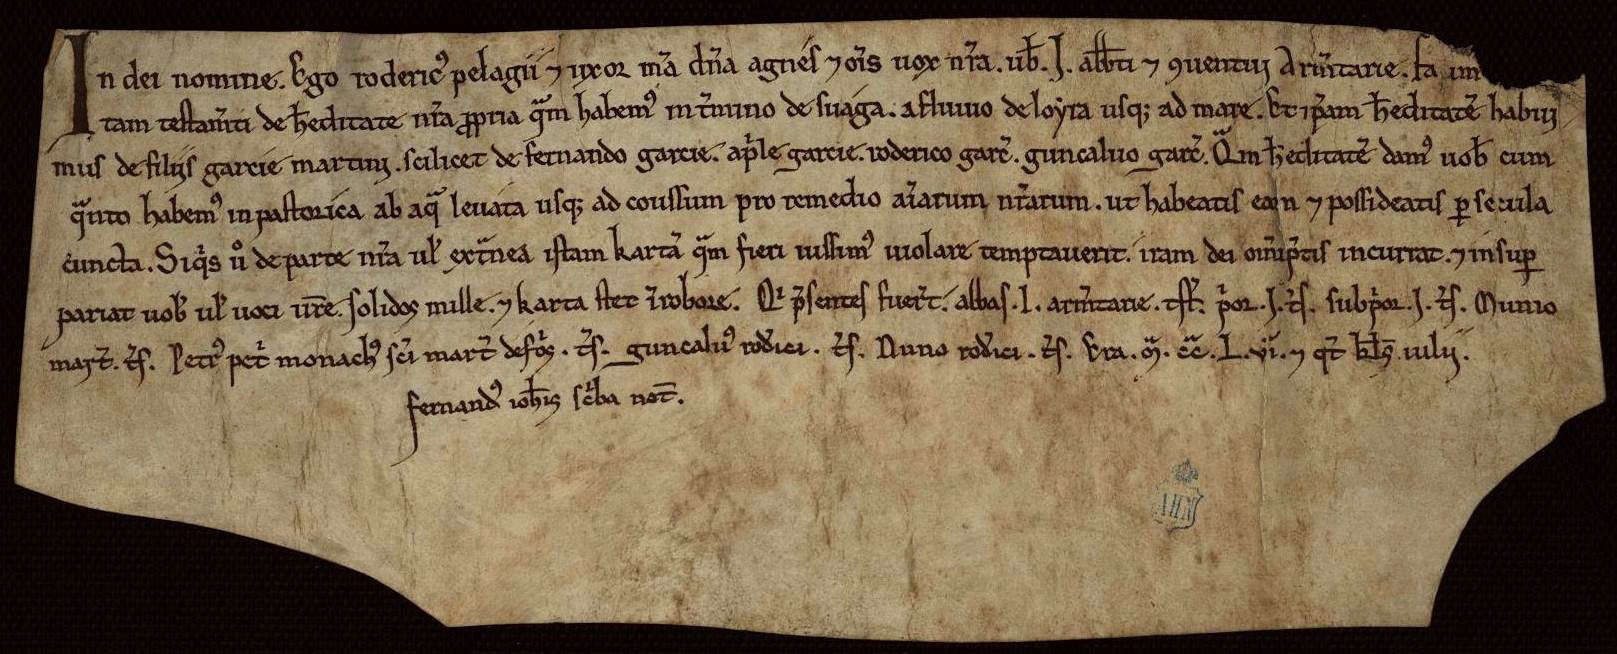 In dei nomine. Ego roderic᷒ pelagii ⁊ uxor m̃a dn̄a agnes ⁊ om̄s uox nr̄a. uob̄. J. abb̄ti ⁊ ꝯuentuj Arm̄tarie. fa
tam testam̄ti de h̄editate nr̄a ꝓpria qͣm habem᷒ in t̄mino de suaga. a fluuio de loyra usqꝫ ad mare. Et ip̄am h̄editatē habuj
mus de filijs garcie martinj. scilicet de fernando garcie. ap̄le garcie. roderico garc̄. guncaluo garc̄. Qͣm h̄editatē dam᷒ uob̄ cum
qͣnto habem᷒ in pastorica ab aqͣ leuata usqꝫ ad coussium pro remedio aīarum nr̄arum. ut habeatis eam ⁊ possideatis ꝑ secula
cuncta. Siqͥs uͦ de parte nr̄a ul̄ ext̄nea istam kartā qͣm fieri iussim᷒ uiolare temptauerit. iram dei om̄ip̄tis incurrat. ⁊ insuꝑ
pariat uob̄ ul̄ uoci ur̄e. solidos mille. ⁊ karta stet ī robore. Qͥ p̄sentes fuer̄t. abbas. J. arm̄tarie. ts̄. pͥor. J. ts̄. subpͥor. J. ts̄. Munio
mart̄. ts̄. Petr᷒ pet̄ monach᷒ sc̄i mart̄ de foͥs. ts̄. guncalu᷒ rod̄ici. ts̄. Nuno rod̄ici. ts̄. Era. Mͣ. CCͣ. L. viͣ. ⁊ qͦt kl̄s. iulii.
fernand᷒ ioh̄is sc̄ba not̄.
AHN